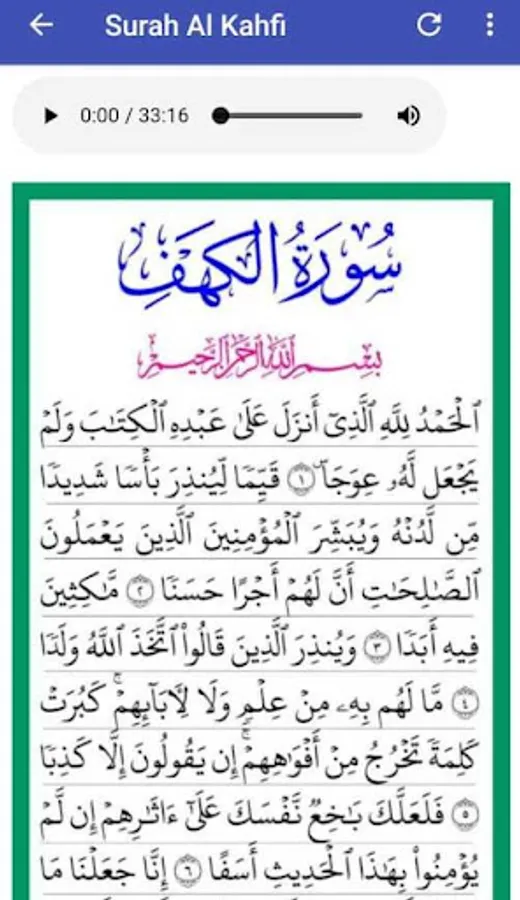 Surah Al Kahfi
0:00 / 33:16
سُورَةُ الكَهْفِ
بِسْمِ ٱللَّهِ ٱلرَّحْمَٰنِ ٱلرَّحِيمِ
ٱلْحَمْدُ لِلَّهِ ٱلَّذِىٓ أَنزَلَ عَلَىٰ عَبْدِهِ ٱلْكِتَٰبَ وَلَمْ
يَجْعَل لَّهُۥ عِوَجَاۜ ١ قَيِّمًا لِّيُنذِرَ بَأْسًا شَدِيدًا
مِّن لَّدُنْهُ وَيُبَشِّرَ ٱلْمُؤْمِنِينَ ٱلَّذِينَ يَعْمَلُونَ
ٱلصَّٰلِحَٰتِ أَنَّ لَهُمْ أَجْرًا حَسَنًا ٢ مَّٰكِثِينَ
فِيهِ أَبَدًا ٣ وَيُنذِرَ ٱلَّذِينَ قَالُوا۟ ٱتَّخَذَ ٱللَّهُ وَلَدًا
٤ مَّا لَهُم بِهِۦ مِنْ عِلْمٍ وَلَا لِـَٔابَآئِهِمْ ۚ كَبُرَتْ
كَلِمَةً تَخْرُجُ مِنْ أَفْوَٰهِهِمْ ۚ إِن يَقُولُونَ إِلَّا كَذِبًا
٥ فَلَعَلَّكَ بَٰخِعٌ نَّفْسَكَ عَلَىٰٓ ءَاثَٰرِهِمْ إِن لَّمْ
يُؤْمِنُوا۟ بِهَٰذَا ٱلْحَدِيثِ أَسَفًا ٦ إِنَّا جَعَلْنَا مَا